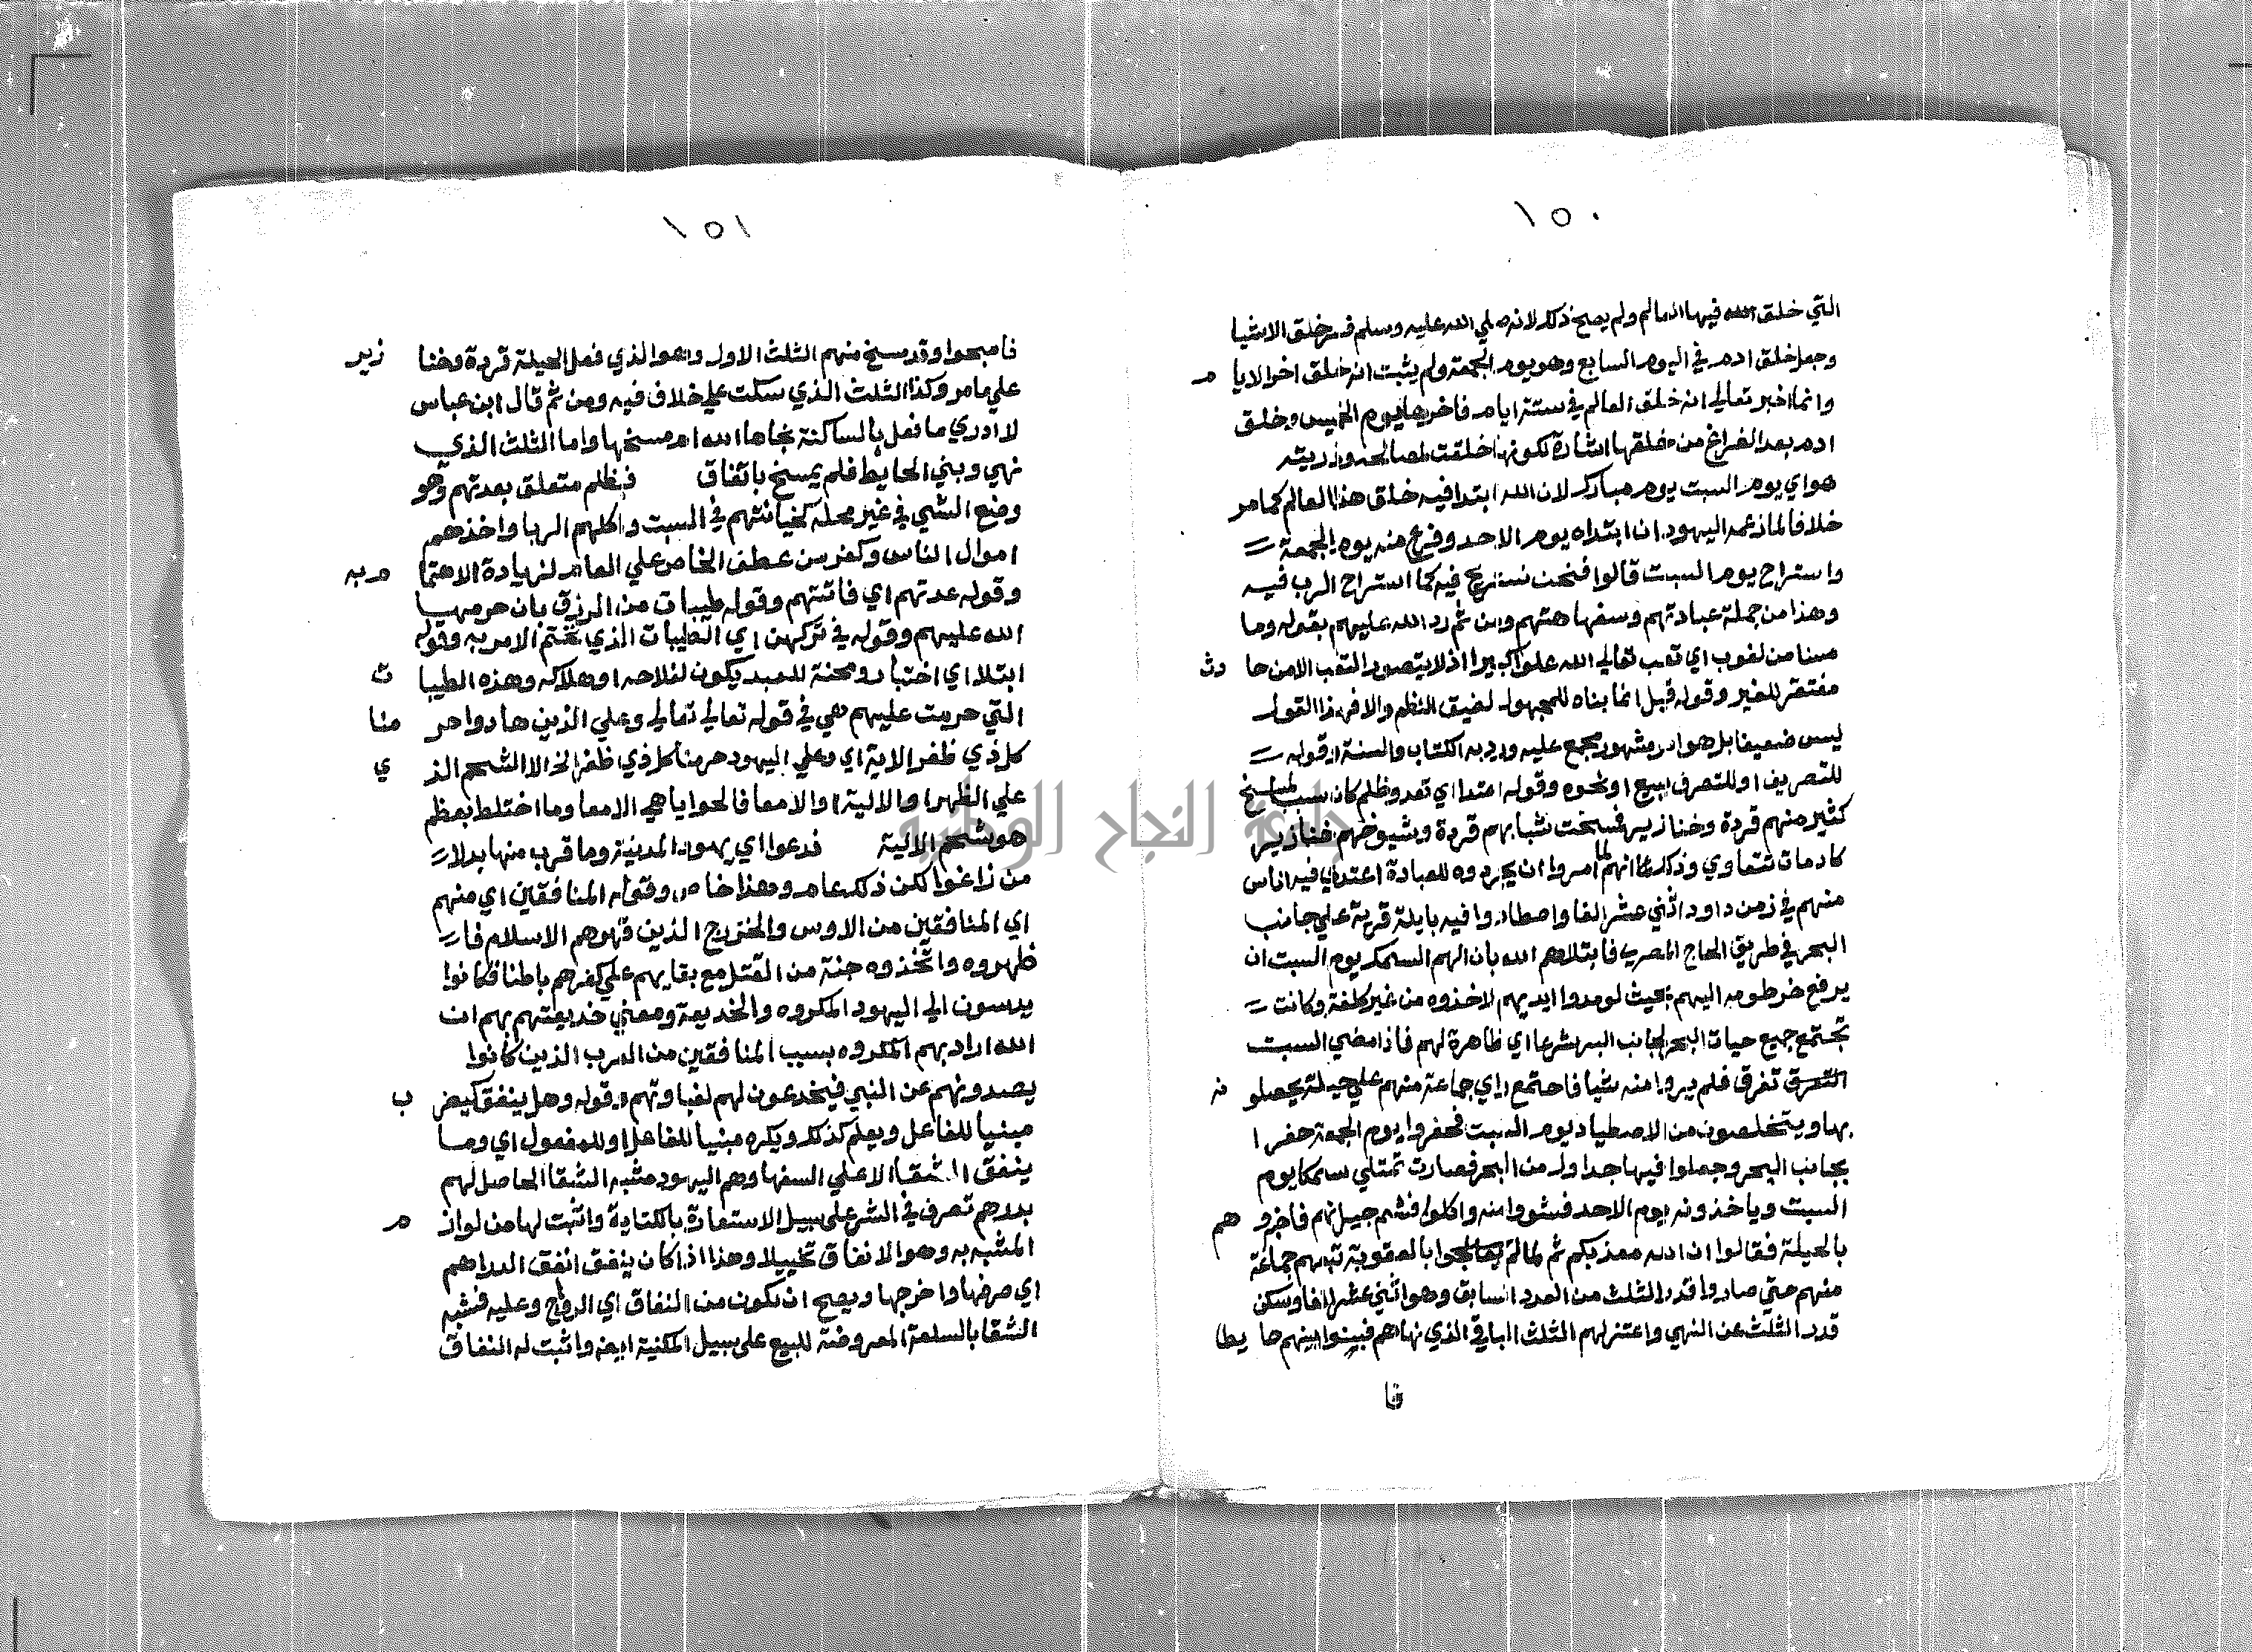 ١٥٠
التي خلق الله فيها العالم ولم يصح ذلك لانه صلي الله عليه وسلم فسر خلق الاشيا
وجعل خلق ادم في اليوم السابع وهو يوم الجمعة ولم يثبت انه خلق اخر الايا م
وانما اخبر تعالي انه خلق العالم في ستة ايام فاخرها يوم الخميس وخلق
ادم بعد الفراغ من خلقها اشارة لكونها خلقت لمصالحه وذريته
هو اي يوم السبت يوم مبارك لان الله ابتدا فيه خلق هذا العالم كما مر
خلافا لما زعمه اليهود ان ابتداه يوم الاحد وفرغ منه يوم الجمعة
واستراح يوم السبت قالوا فنحن نستريح فيه كما استراح الرب فيه
وهذا من جملة عبادتهم وسفهاهتهم ومن ثم رد الله عليهم بقوله وما
مسنا من لغوب اي تعب تعالي الله علوا كبيرا اذ لا يتصور التعب الا من حا دث
مفتقر للغير وقوله قبل انما بناه للمجهول لضيق النظم والا فهذا القول
ليس ضعيفا بل هو امر مشهور مجمع عليه ورد به الكتاب والسنة وقوله
للتصريف او للتصرف ببيع او نحوه وقوله اعتدا اي تعد وظلم كان سبب لمسخ
كثير منهم قردة وخنازير فمسخت شبابهم قردة وشيوخهم خنازير
كادمات تتعاوي وذلك انهم لما امروا ان يجردوه للعبادة اعتدي فيه اناس
منهم في زمن داود اثني عشر الفا واصطادوا فيه بايلة قرية علي جانب
البحر في طريق الحاج المصري فابتلاهم الله بان الهم السمك يوم السبت ان
يرفع خرطومه اليهم بحيث لو مدوا ايديهم لاخذوه من غير كلفة وكانت
تجتمع جميع حيات البحر لجانب البر شرعا اي ظاهرة لهم فاذا مضي السبت
التفرق تفرق فلم يروا منه شيا فاجتمع راي جماعة منهم علي حيلة يحصلو نه
بها ويتخلصون من الاصطياد يوم السبت فحفروا يوم الجمعة حفرا
بجانب البحر وجعلوا فيها جداول من البحر فصارت تمتلي سمكا يوم
السبت وياخذونه يوم الاحد فشووا منه واكلوا فشم جيرانهم فاخبرو هم
بالحيلة فقالوا ان الله معذبكم ثم لما لم يعاجلوا بالعقوبة تبعهم جماعة
منهم حتي صاروا قدر الثلث من العدد السابق وهو اثني عشر الفا وسكن
قدر الثلث عن النهي واعتزلهم الثلث الباقي الذي نهاهم فبنوا بينهم حا يطا
فا
١٥١
فاصبحوا وقد مسخ منهم الثلث الاول وهو الذي فعل الحيلة قردة وخنا زير
علي ما مر وكذا الثلث الذي سكت علي خلاف فيه ومن ثم قال ابن عباس
لا ادري ما فعل بالساكتة نجاها الله ام مسخها واما الثلث الذي
نهي وبني الحايط فلم يمسخ باتفاق فبظلم متعلق بعدتهم وهو
وضع الشي في غير محله كخيانتهم في السبت واكلهم الربا واخذهم
اموال الناس وكفر من عطف الخاص علي العام لزيادة الاهتما م به
وقوله عدتهم اي فاتتهم وقوله طيبات من الرزق بان حرمها
الله عليهم وقوله في تركهن اي الطيبات الذي تحتم الامر به وقوله
ابتلا اي اختبار ومحنة للعبد يكون لفلاحه او هلاكه وهذه الطيبا ت
التي حرمت عليهم هي في قوله تعالي تعالي وعلي الذين هادوا حر منا
كل ذي ظفر الاية اي وعلي اليهود حرمنا كل ذي ظفر الخ الا الشحم الذ ي
علي الظهر او الالية او الامعا فالحوايا هي الامعا وما اختلط بعظم
هو شحم الالية فدعوا اي يهود المدينة وما قرب منها بدلا
من زاغوا لكن ذلك عام وهذا خاص وقوله المنافقين اي منهم
اي المنافقين من الاوس والخزرج الذين قهرهم الاسلام فا
ظهروه واتخذوه جنة من القتل مع بقايهم علي كفرهم باطنا فكانوا
يدسون الي اليهود المكروه والخديعة ومعني خديعتهم بهم ان
الله اراد بهم المكروه بسبب المنافقين من العرب الذين كانوا
يصدونهم عن النبي فيخدعون لهم لغباوتهم وقوله وهل ينفق كيض ب
مبنيا للفاعل ويعلم كذلك ويكره مبنيا للفاعل او للمفعول اي وما
ينفق الشقا الا علي السفها وهم اليهود مشبه الشقا الحاصل لهم
بدرهم تصرف في الشر علي سبيل الاستعارة بالكناية واثبت لها من لواز م
المشبه به وهو الانفاق تخييلا وهذا اذا كان ينفق انفق الدراهم
اي صرفها واخرجها ويصح ان تكون من النفاق اي الرواج وعليه فشبه
الشقا بالسلعة المعروضة للبيع علي سبيل المكنية ايضه واثبت له النفاق
جامعة النجاح الوطنية